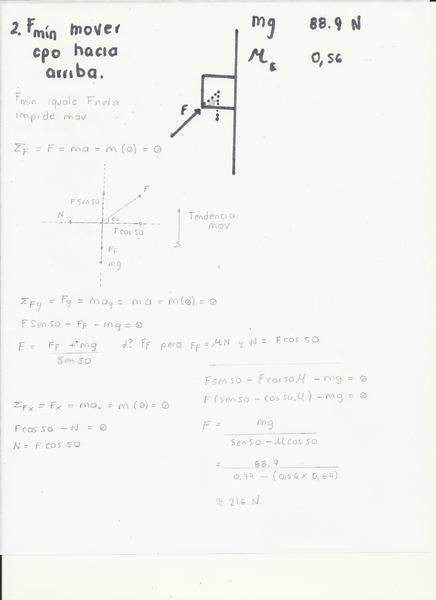 2. Fmín mover
cpo hacia
arriba.
mg 88.9 N
μE 0,56
F
Fmín iguale Fneta
impide mov
ΣF = F = ma = m(0) = 0
F sen 50
F
N
50
F cos 50
FF
mg
Tendencia
mov
ΣFy = Fy = may = ma = m(0) = 0
F sen 50 - FF - mg = 0
F = FF + mg / sen 50 ¿? FF pero FF = μN y N = F cos 50
ΣFx = Fx = max = m(0) = 0
F cos 50 - N = 0
N = F cos 50
F sen 50 - F cos 50 μ - mg = 0
F (sen 50 - cos 50 μ) - mg = 0
F = mg / sen 50 - μ cos 50
= 88.9 / 0.77 - (0,56 x 0,64)
≈ 216 N